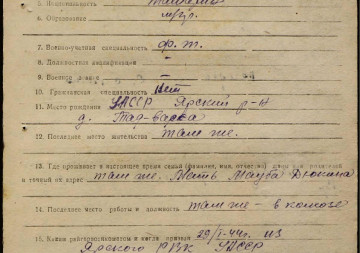 5. Национальность
6. Образование
7. Военно-учетная специальность ф. т.
8. Должностная квалификация —
9. Военное звание
10. Гражданская специальность Нет
11. Место рождения УАССР Ярский р-н
д.
12. Последнее место жительства там же.
13. Где проживает в настоящее время семья (фамилия, имя, отчество) жены или родителей
и точный их адрес там же. Мать
14. Последнее место работы и должность там же - в колхозе
15. Каким райгорвоенкоматом и когда призван 29/I-44г. из
Ярского РВК УАССР